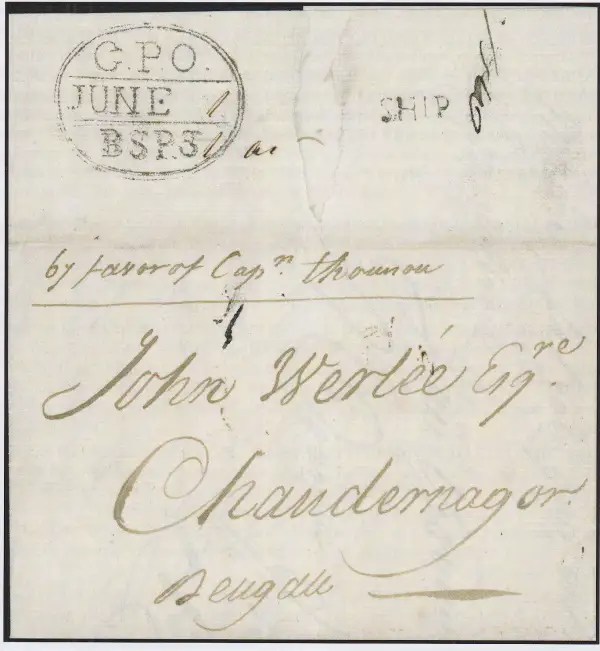 G.P.O.
JUNE 1
BSP.S 1 a
SHIP
by favor of Capn. thounou
John Werlée Esqre.
Chandernagor.
Bengale